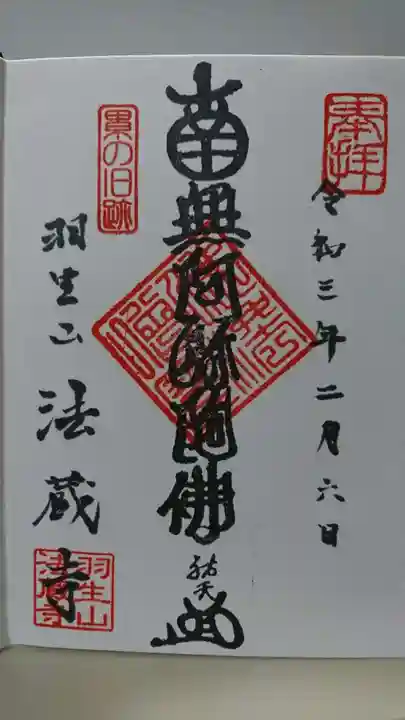 奉拝
令和三年二月六日
南無阿弥陀佛
祐天
累の旧跡
羽生山
法蔵寺
羽生山
法蔵寺